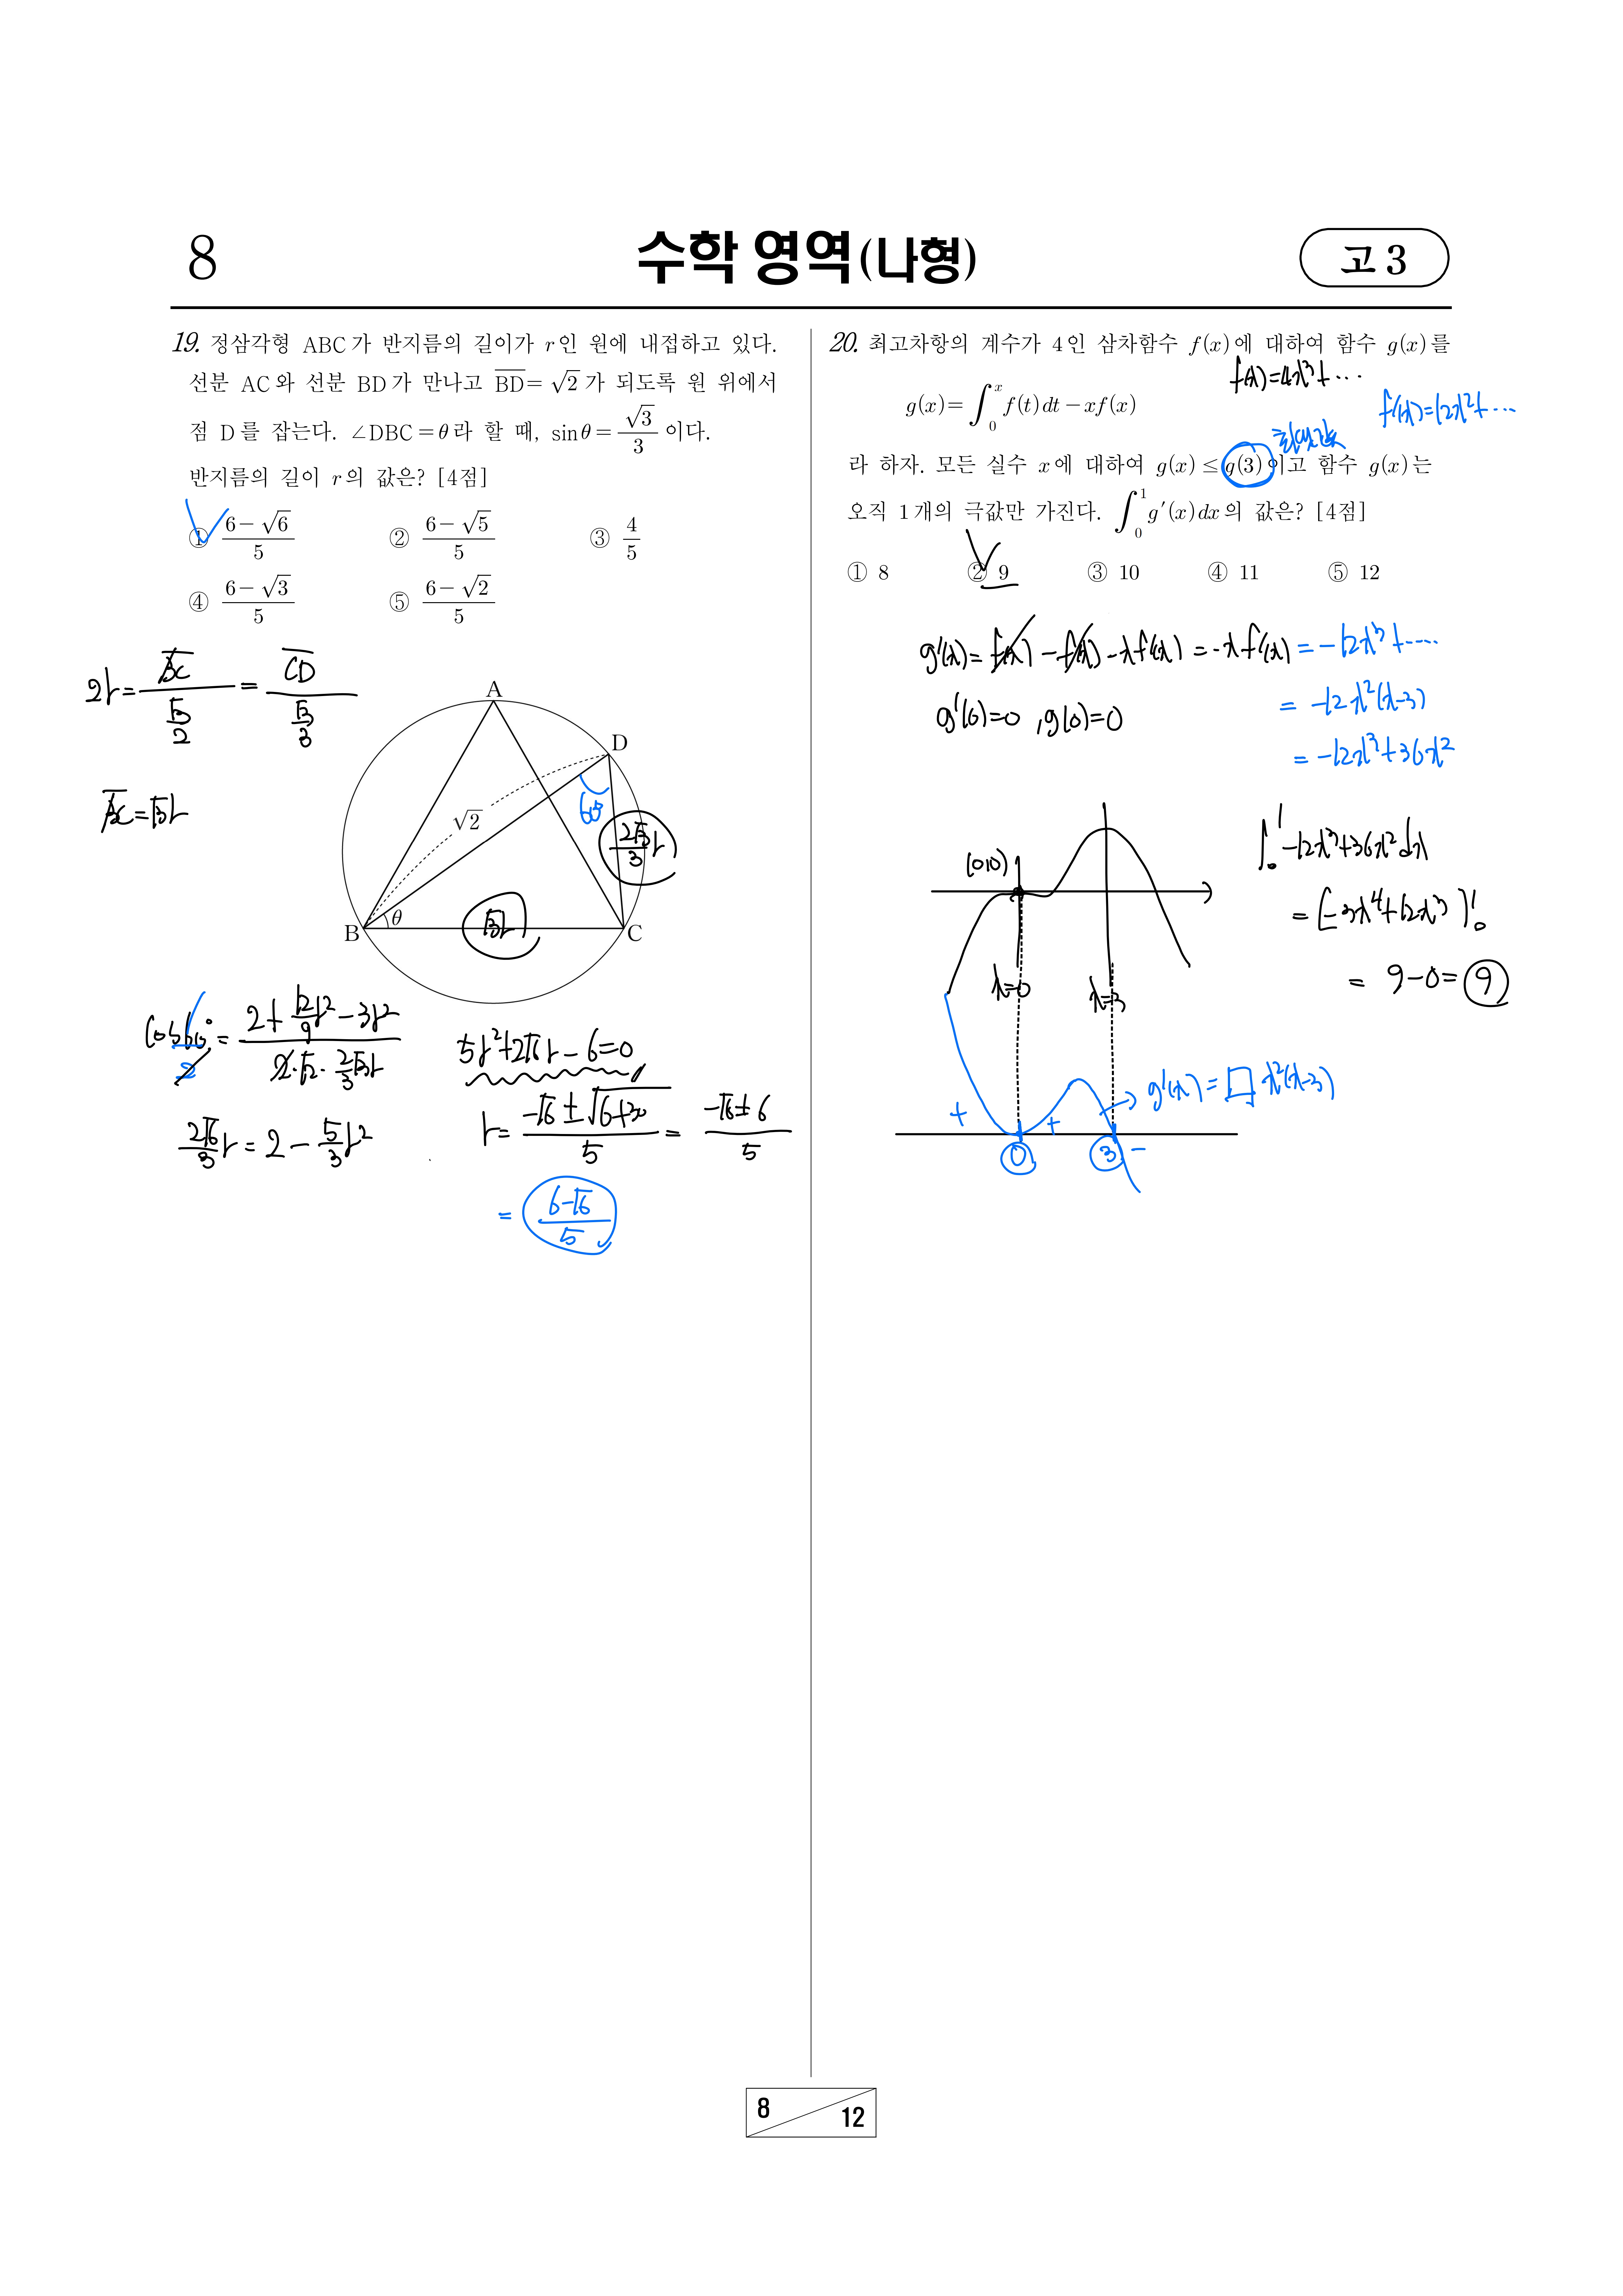 8
수학 영역(나형)
고 3
19. 정삼각형 ABC가 반지름의 길이가 r인 원에 내접하고 있다.
선분 AC와 선분 BD가 만나고 \overline{BD}=√2 가 되도록 원 위에서
점 D를 잡는다. ∠DBC=θ라 할 때, sinθ=√3/3 이다.
반지름의 길이 r의 값은? [4점]
① (6-√6)/5 ② (6-√5)/5 ③ 4/5
④ (6-√3)/5 ⑤ (6-√2)/5
2r = \overline{BC}/(√3/2) = \overline{CD}/(√3/3)
\overline{BC}=√3r
A
D
√2
60°
2√3/3 r
B
θ
√3r
C
cos60° = (2+12/9 r²-3r²)/(2·√2·2/3√3r)
2
2√6/3 r = 2 - 5/3 r²
5r²+2√6r-6=0
r = (-√6±√(6+30))/5 = (-√6±6)/5
= (6-√6)/5
20. 최고차항의 계수가 4인 삼차함수 f(x)에 대하여 함수 g(x)를
f(x)=4x³+⋯
g(x)=∫₀ˣ f(t)dt-xf(x)
f'(x)=12x²+⋯
라 하자. 모든 실수 x에 대하여 g(x)≤g(3)이고 함수 g(x)는
오직 1개의 극값만 가진다. ∫₀¹ g'(x)dx의 값은? [4점]
① 8 ② 9 ③ 10 ④ 11 ⑤ 12
g'(x)=f(x)-f(x)-xf'(x)=-xf'(x)=-12x³+⋯
g'(0)=0, g(0)=0
=-12x²(x-3)
=-12x³+36x²
(0,0)
x=0
x=3
∫₀¹ -12x³+36x² dx
=[-3x⁴+12x³]₀¹
= 9-0=9
g'(x)=□x²(x-3)
+
+
-
0
3
8
12